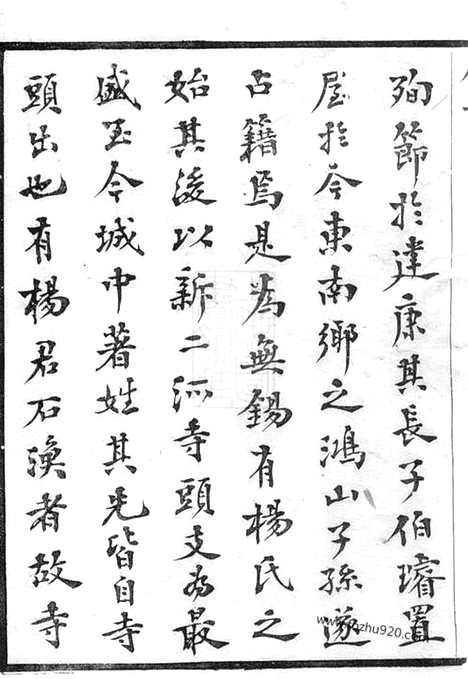 殉節於建康其長子伯璿置
屋於今東南鄉之鴻山子孫遂
占籍焉是為無錫有楊氏之
始其後以新二派寺頭支為最
盛至今城中著姓其先皆自寺
頭出也有楊君石漁者故寺